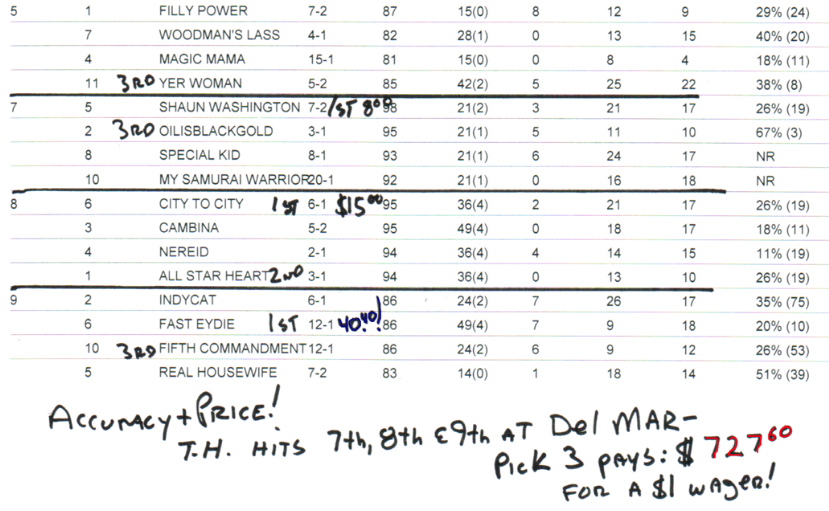 5 1 FILLY POWER 7-2 87 15(0) 8 12 9 29% (24)
7 WOODMAN'S LASS 4-1 82 28(1) 0 13 15 40% (20)
4 MAGIC MAMA 15-1 81 15(0) 0 8 4 18% (11)
11 3RD YER WOMAN 5-2 85 42(2) 5 25 22 38% (8)
7 5 SHAUN WASHINGTON 7-2 1ST 8.00 98 21(2) 3 21 17 26% (19)
2 3RD OILISBLACKGOLD 3-1 95 21(1) 5 11 10 67% (3)
8 SPECIAL KID 8-1 93 21(1) 6 24 17 NR
10 MY SAMURAI WARRIOR 20-1 92 21(1) 0 16 18 NR
8 6 CITY TO CITY 1ST 6-1 $15.00 95 36(4) 2 21 17 26% (19)
3 CAMBINA 5-2 95 49(4) 0 18 17 18% (11)
4 NEREID 2-1 94 36(4) 4 14 15 11% (19)
1 ALL STAR HEART 2ND 3-1 94 36(4) 0 13 10 26% (19)
9 2 INDYCAT 6-1 86 24(2) 7 26 17 35% (75)
6 FAST EYDIE 1ST 12-1 40.40! 86 49(4) 7 9 18 20% (10)
10 3RD FIFTH COMMANDMENT 12-1 86 24(2) 6 9 12 26% (53)
5 REAL HOUSEWIFE 7-2 83 14(0) 1 18 14 51% (39)
ACCURACY + PRICE!
T.H. HITS 7th, 8th & 9th AT Del MAR-
Pick 3 pays: $727.60
FOR A $1 wager!